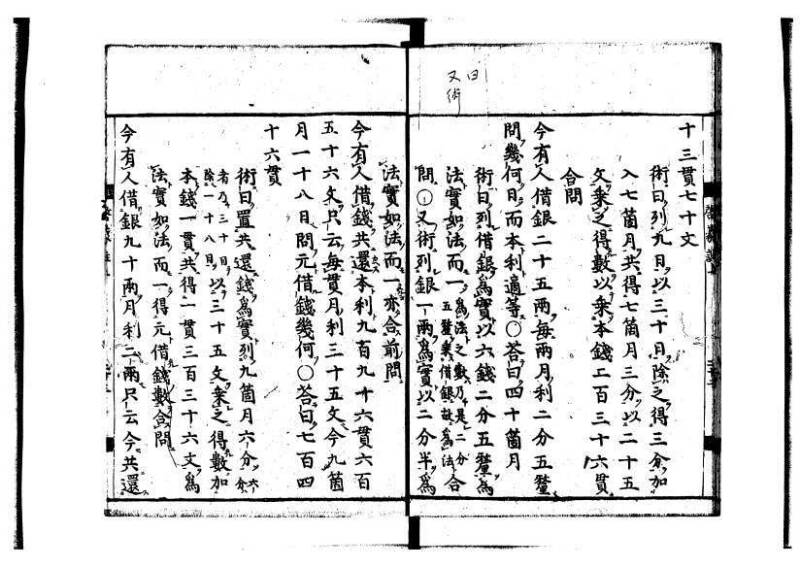 曰
又術
十三貫七十文
術曰列九日以三十日除之得三分加
入七箇月共得七箇月三分以二十五
文乘之得數以乘本錢二百三十六貫
合問
今有人借銀二十五兩每兩月利二分五釐
問幾何日而本利適等○答曰四十箇月
術曰列借銀爲實以六錢二分五釐爲
法實如法而一爲法之數乃是二分五釐乘借銀故爲法合
問○又術列銀一兩爲實以二分半爲
法實如法而一亦合前問
今有人借錢共還本利九百九十六貫六百
五十六文只云每貫月利三十五文今九箇
月一十八日問元借錢幾何○答曰七百四
十六貫
術曰置共還錢爲實列九箇月六分六分
者乃三十日除一十八日以三十五文乘之得數加
本錢一貫共得一貫三百三十六文爲
法實如法而一得元借錢數合問
今有人借銀九十兩月利二兩只云今共還